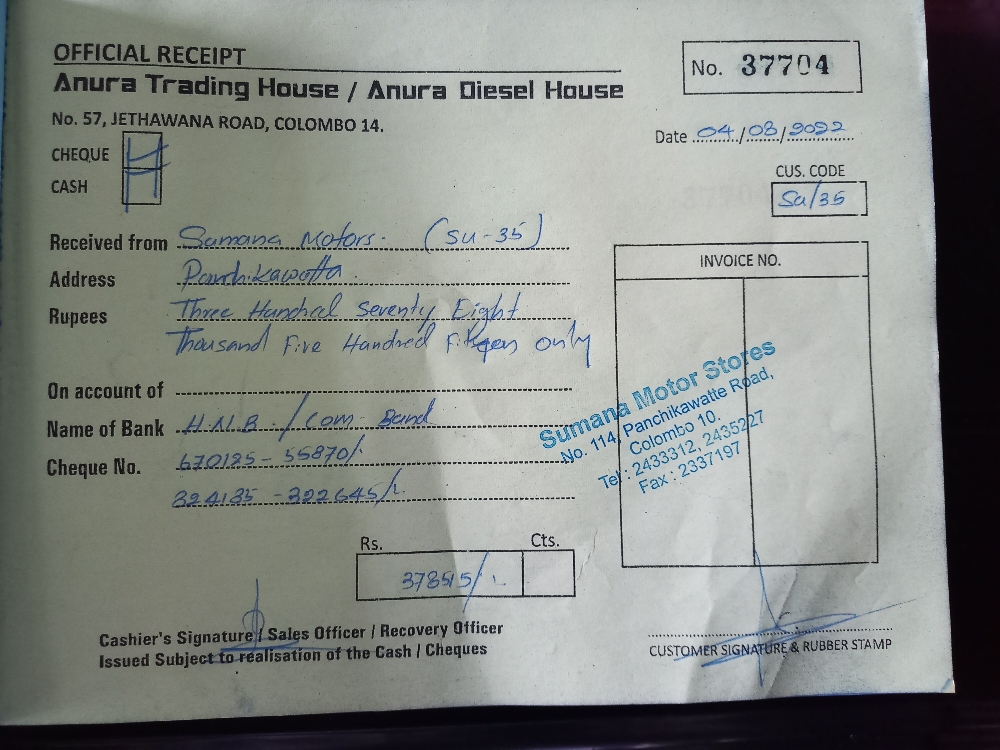 OFFICIAL RECEIPT
Anura Trading House / Anura Diesel House
No. 57, JETHAWANA ROAD, COLOMBO 14.
No. 37704
Date 04/08/2022
CHEQUE
CASH
CUS. CODE
Su/35
Received from Sumana Motors. (SU-35)
Address Panchikawatta.
Rupees Three Hundred Seventy Eight
Thousand Five Hundred Fifteen only
On account of
Name of Bank H.N.B. / Com Band
Cheque No. 670125 - 55870/-
324135 - 322645/-
INVOICE NO.
Sumana Motor Stores
No. 114, Panchikawatte Road,
Colombo 10.
Tel : 2433312, 2435227
Fax : 2337197
Rs. Cts.
378515/-
Cashier's Signature / Sales Officer / Recovery Officer
Issued Subject to realisation of the Cash / Cheques
CUSTOMER SIGNATURE & RUBBER STAMP